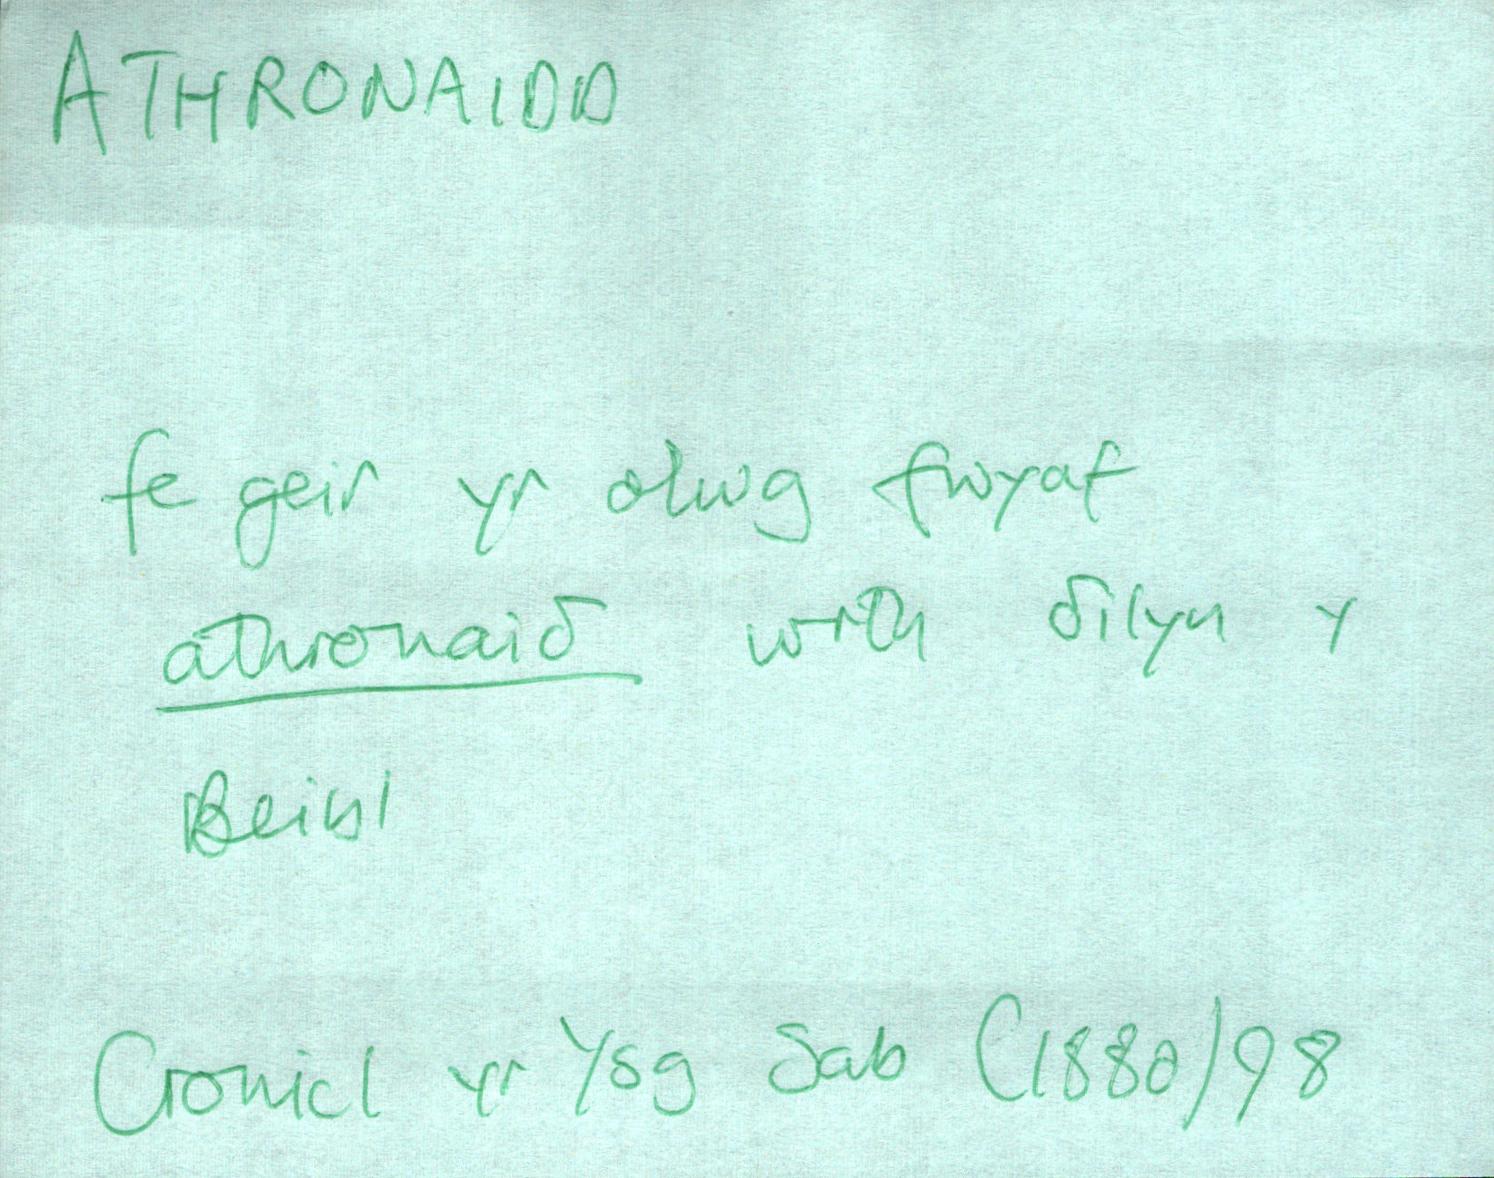 ATHRONAIDD
fe geir yr olwg fwyaf
athronaiδ wrth δilyn y
Beibl
Cronicl yr Ysg Sab (1880) 98